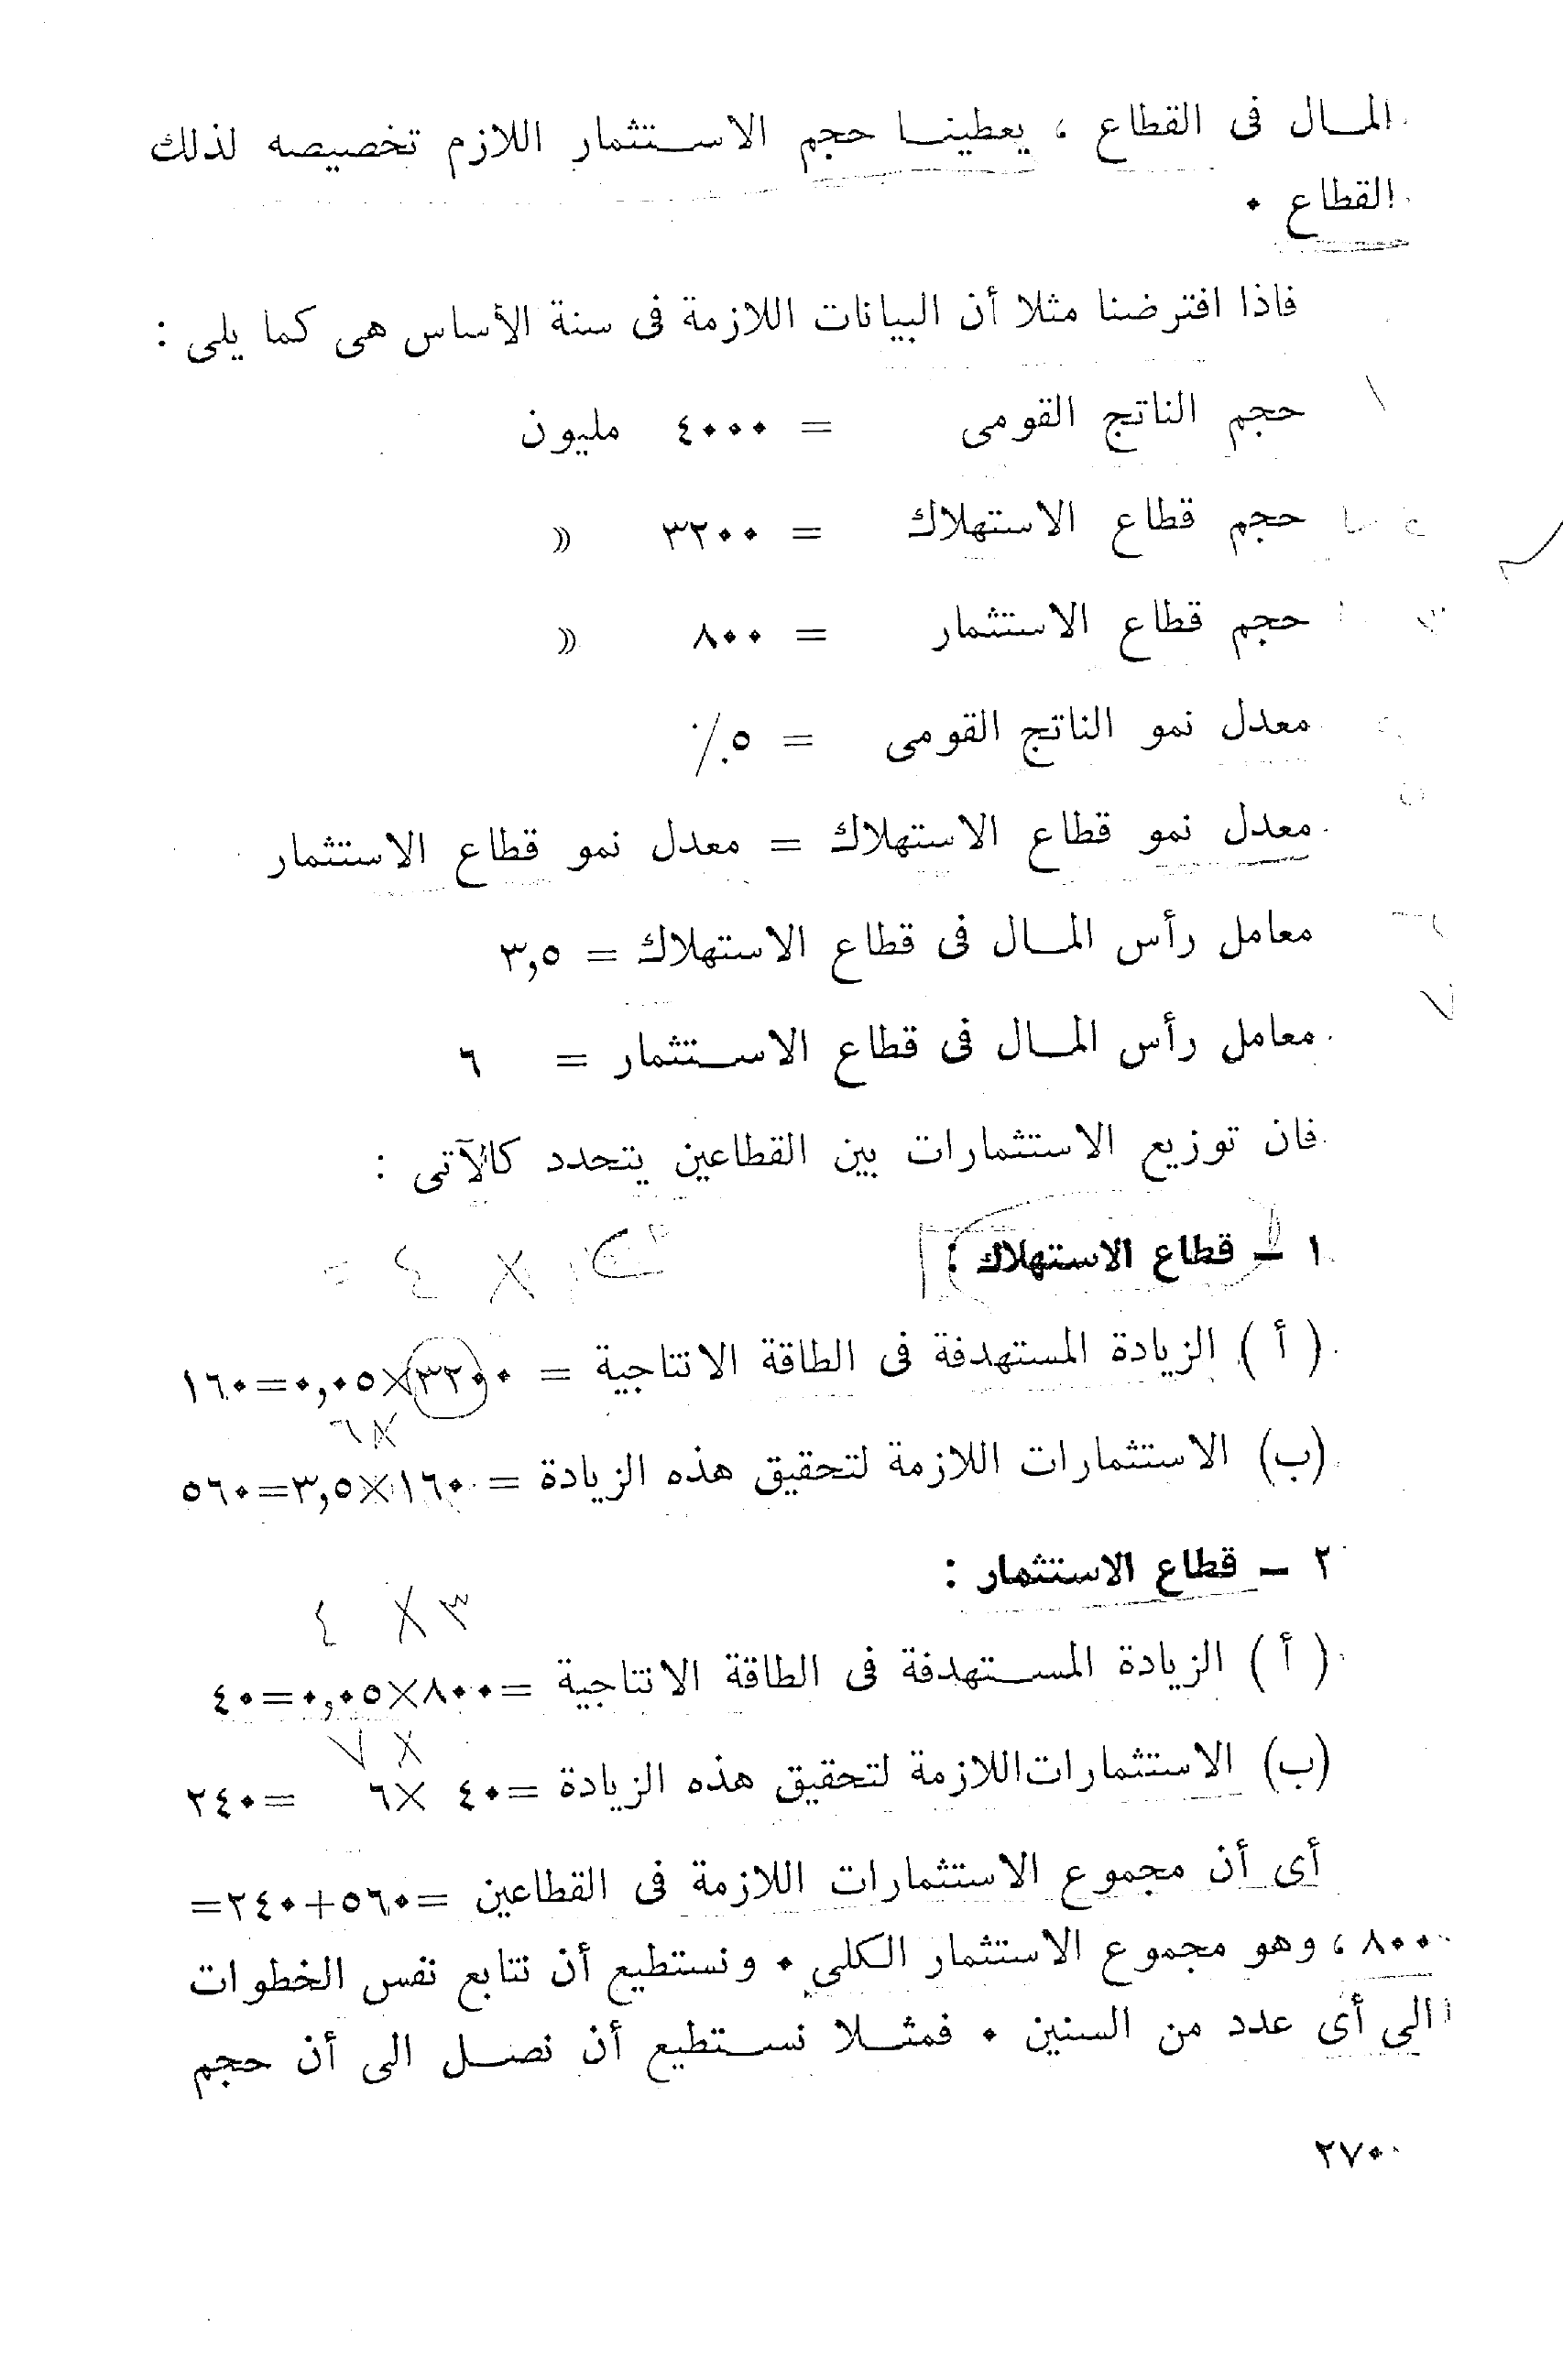 المــال فى القطاع ، يعطينــا حجم الاســتثمار اللازم تخصيصه لذلك
القطاع ٠
فاذا افترضنا مثلا أن البيانات اللازمة فى سنة الأساس هى كما يلى :
حجم الناتج القومى = ٤٠٠٠ مليون
حجم قطاع الاستهلاك = ٣٢٠٠ »
حجم قطاع الاستثمار = ٨٠٠ »
معدل نمو الناتج القومى = ٥٪
معدل نمو قطاع الاستهلاك = معدل نمو قطاع الاستثمار
معامل رأس المــال فى قطاع الاستهلاك = ٣,٥
معامل رأس المــال فى قطاع الاســتثمار = ٦
فان توزيع الاستثمارات بين القطاعين يتحدد كالآتى :
١ – قطاع الاستهلاك :
× ٤ =
( أ ) الزيادة المستهدفة فى الطاقة الانتاجية = ٣٢٠٠×٠,٠٥=١٦٠
×٦
(ب) الاستثمارات اللازمة لتحقيق هذه الزيادة = ١٦٠×٣,٥=٥٦٠
٢ – قطاع الاستثمار :
٣ × ٤
( أ ) الزيادة المســتهدفة فى الطاقة الانتاجية =٨٠٠×٠,٠٥=٤٠
× ٧
(ب) الاستثمارات اللازمة لتحقيق هذه الزيادة =٤٠ ×٦ =٢٤٠
أى أن مجموع الاستثمارات اللازمة فى القطاعين =٥٦٠+٢٤٠=
٨٠٠ ، وهو مجموع الاستثمار الكلى ٠ ونستطيع أن نتابع نفس الخطوات
الى أى عدد من السنين ٠ فمثــلا نســتطيع أن نصــل الى أن حجم
٢٧٠